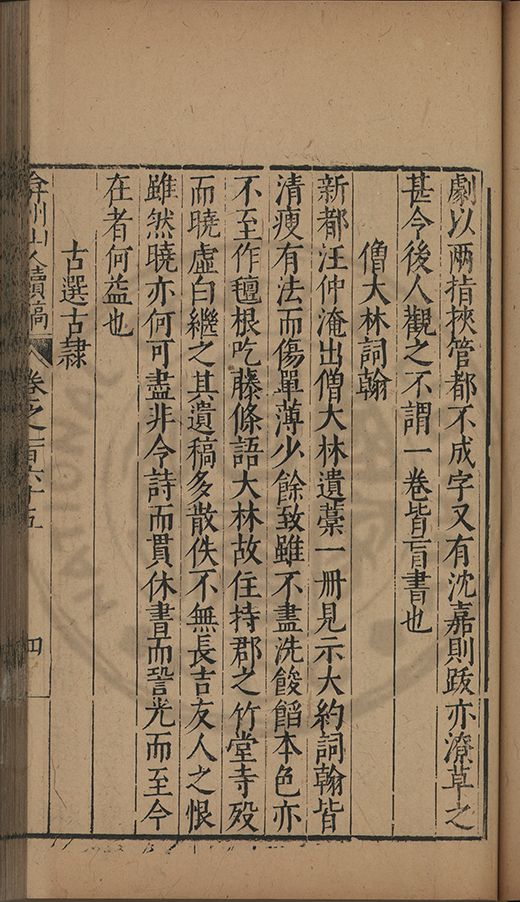 劇以兩指挾管都不成字又有沈嘉則跋亦潦草之
甚令後人觀之不謂一卷皆盲書也
僧大林詞翰
新都汪仲淹出僧大林遺藁一冊見示大約詞翰皆
清瘦有法而傷單薄少餘致雖不盡洗餕餡本色亦
不至作𣯶根吃藤條語大林故住持郡之竹堂寺歿
而曉虛白繼之其遺稿多散佚不無長吉友人之恨
雖然曉亦何可盡非令詩而貫休書而䛒光而至今
在者何益也
古選古隷
弇州山人續稿 卷之一百六十五 四